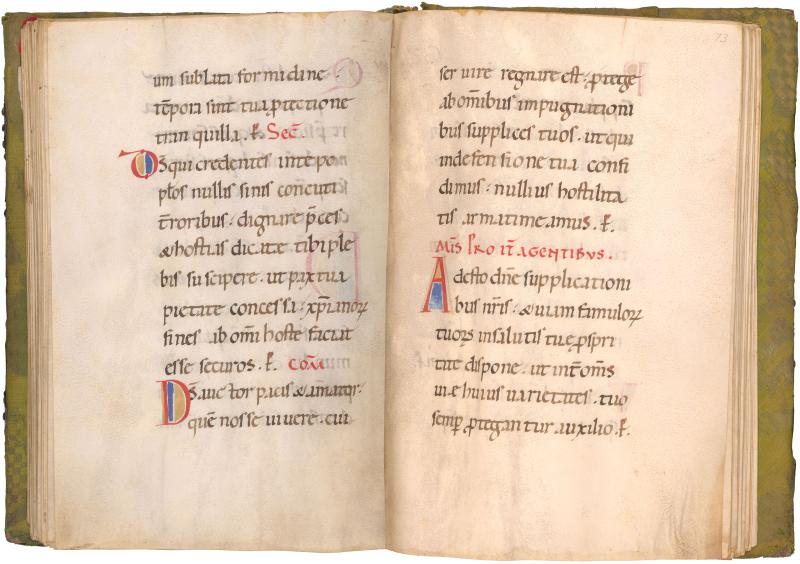 um sublata formidine.
tēpora sint tua ꝓtectione
tranquilla. ꝑ. Sec̄.
Dſ qui credentes in te po
pl̄os nullis sinis concuti
t̄roribus. dignare p̄ces
& hostias dicate tibi ple
bis suscipere. ut pax tua
pietate concessa. xp̄ianoꝝ
fines ab omi hoste faciat
esse securos. ꝑ. com̄
Ds auctor pacis & amator.
quē nosse uiuere. cui
73
seruire regnare est. ꝓtege
ab omībus impugnationi
bus supplices tuos. ut qui
in defensione tua confi
dimus. nullius hostilita
tis arma timeamus. ꝑ.
MIS̄ PRO IT̄ AGENTIBVS.
Adesto dn̄e supplicationi
bus nr̄is. & uiam famuloꝝ
tuoꝝ in salutis tue ꝓspri
tate dispone. ut int̄ om̄s
uie huius uarietates. tuo
semꝑ ꝓtegantur auxilio. ꝑ.